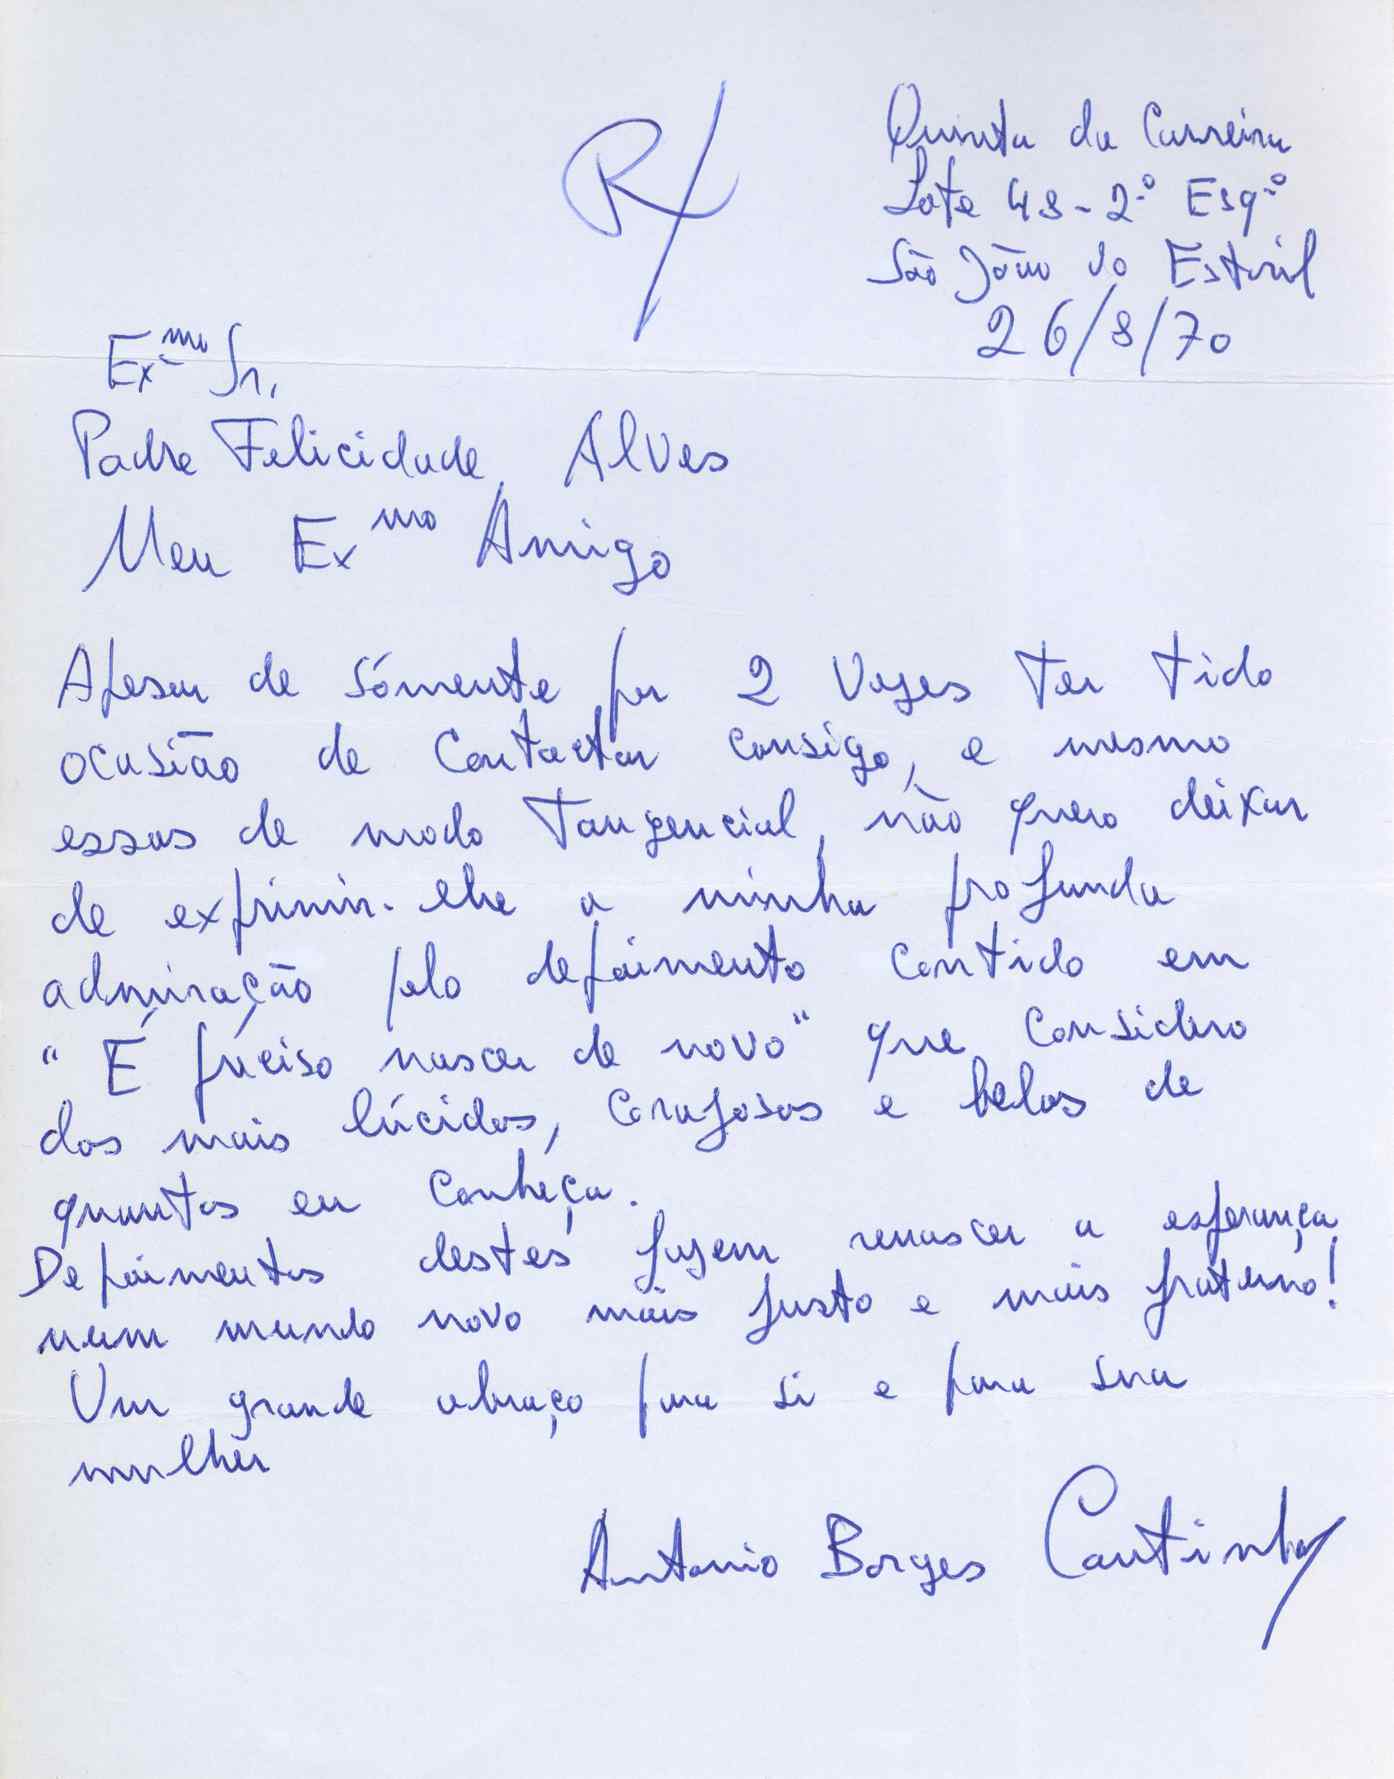 R/
Quinta da Carreira
Lote 48-2.º Esq.º
São João do Estoril
26/8/70
Exmo Sr.
Padre Felicidade Alves
Meu Exmo Amigo
Apesar de sómente por 2 vezes ter tido
ocasião de contactar consigo, e mesmo
essas de modo tangencial, não quero deixar
de exprimir-lhe a minha profunda
admiração pelo depoimento contido em
"É preciso nascer de novo" que considero
dos mais lúcidos, corajosos e belos de
quantos eu conheça.
Depoimentos destes fazem renascer a esperança
num mundo novo mais justo e mais fraterno!
Um grande abraço para si e para sua
mulher
Antonio Borges Coutinho